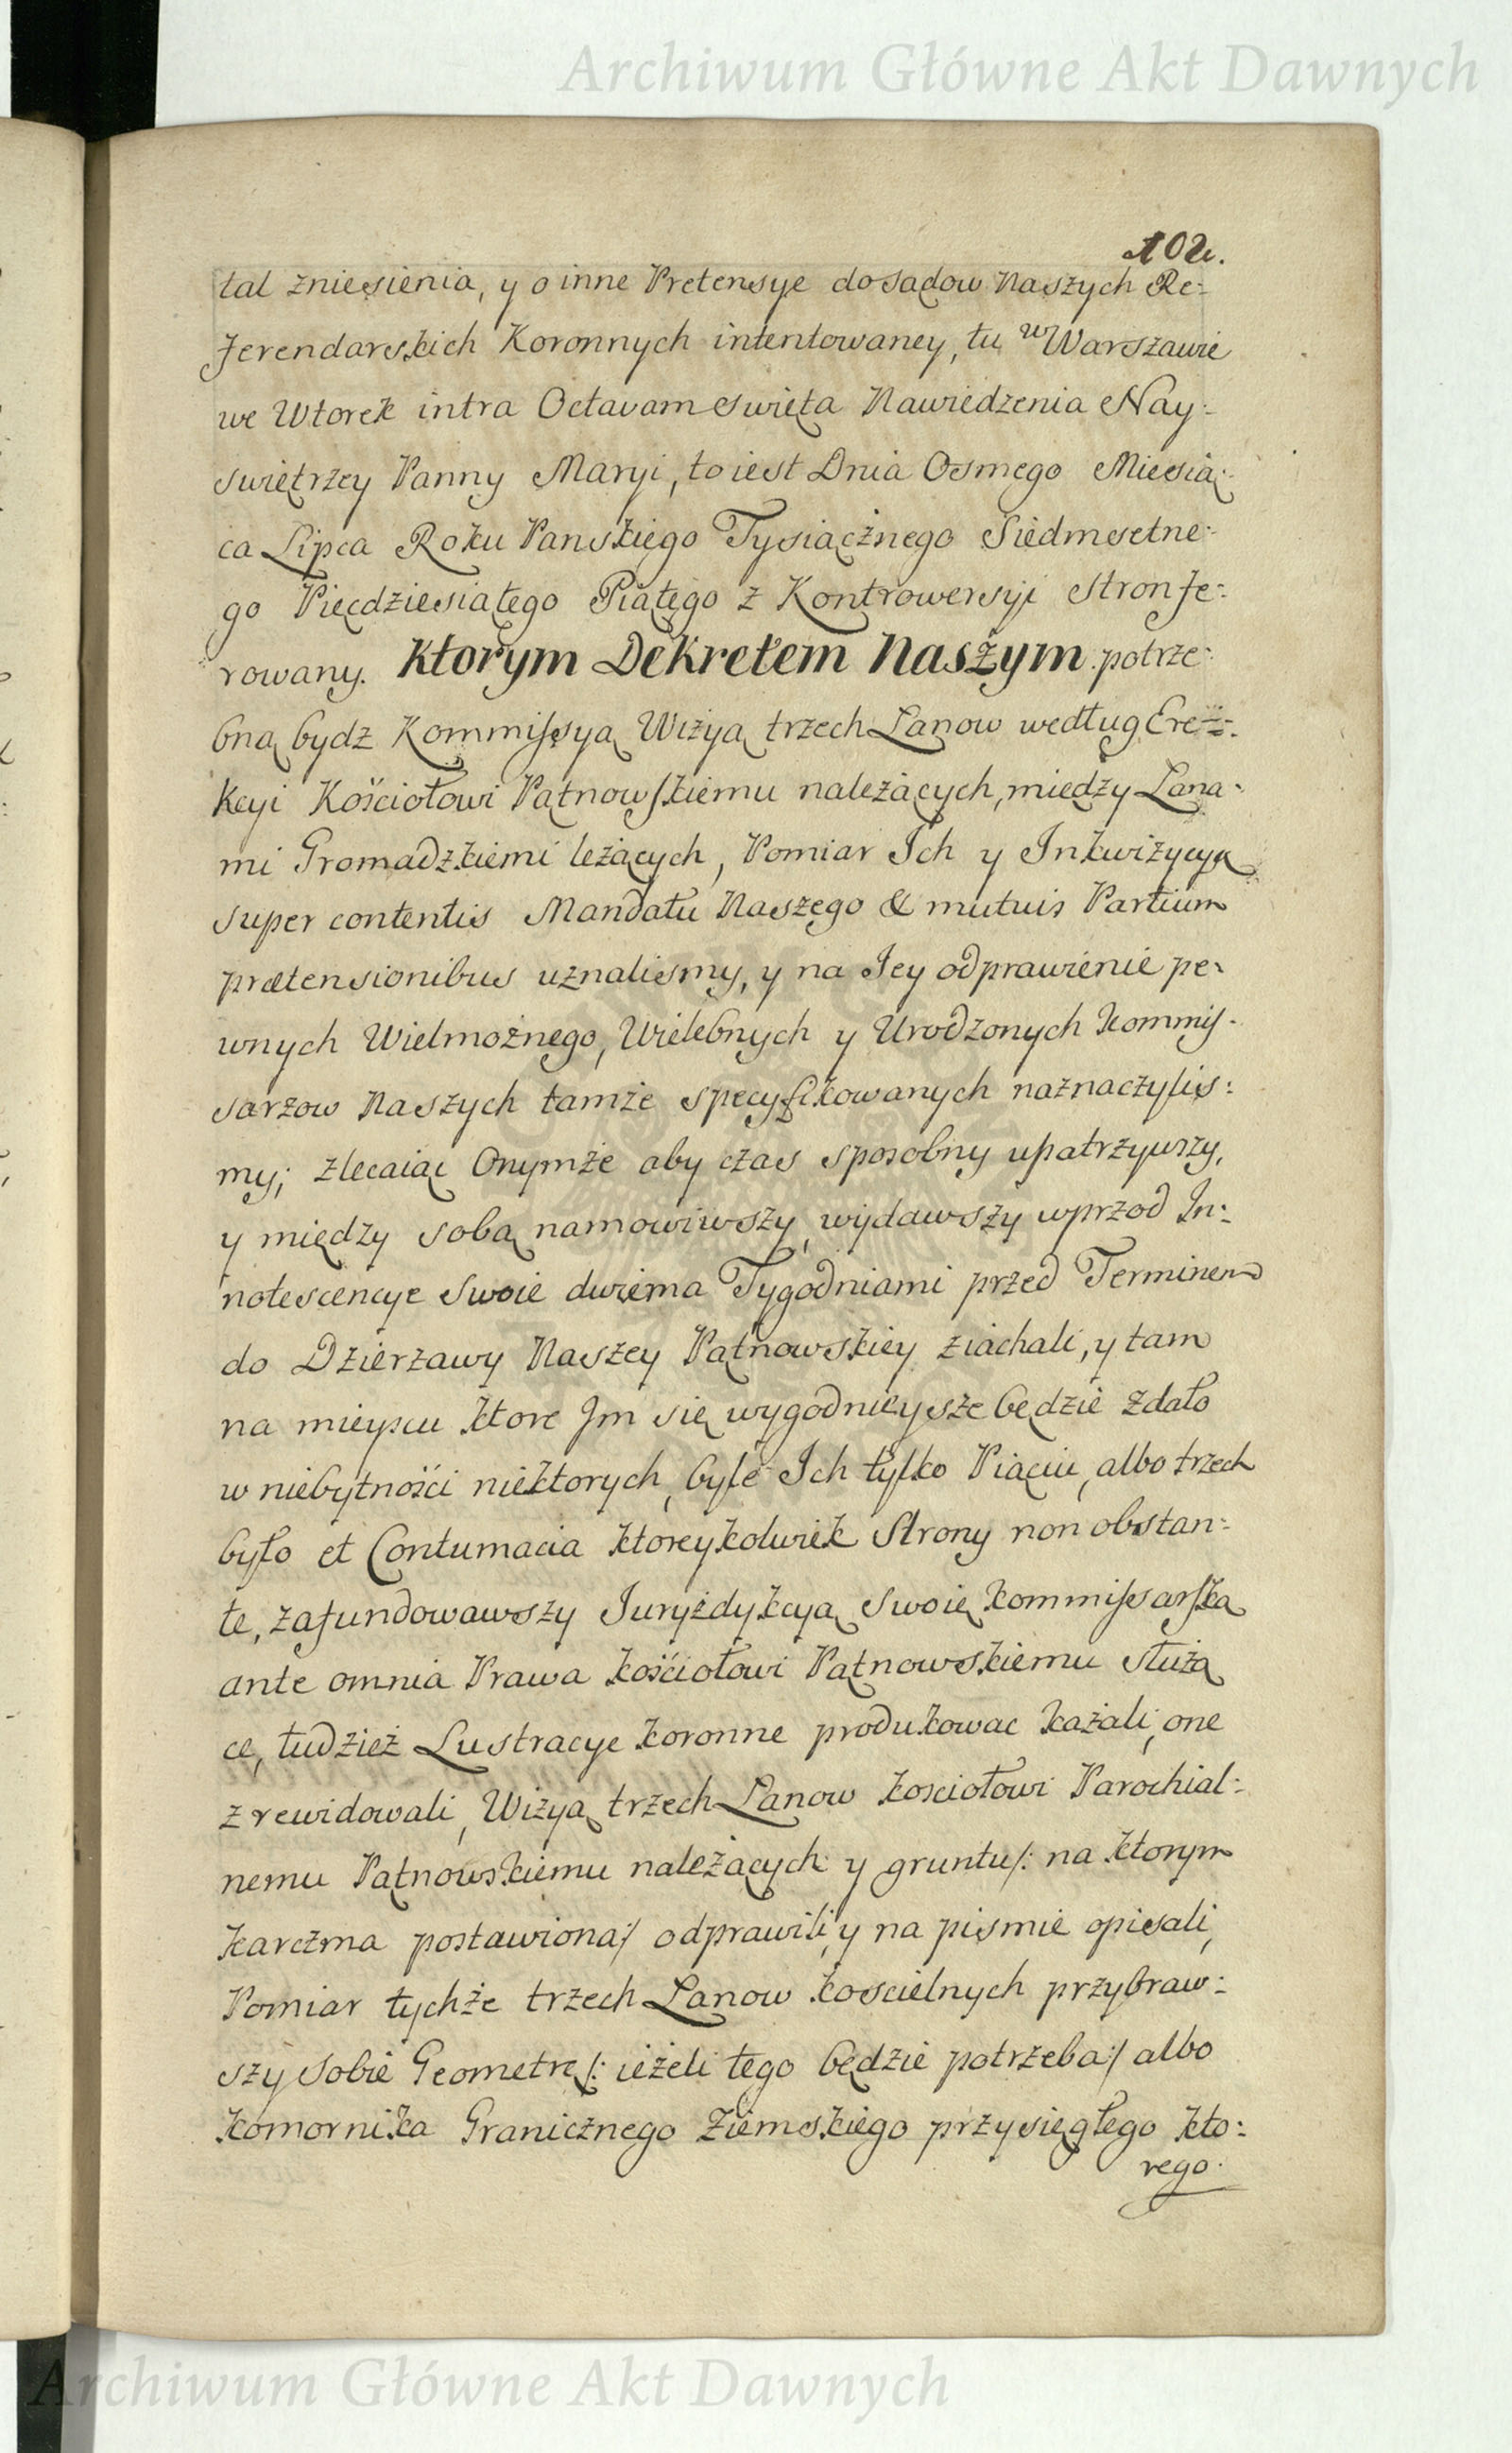 Archiwum Główne Akt Dawnych
102.
tal zniesienia, y o inne Pretensye do Sądow Naszych Re=
ferendarskich Koronnych intentowaney, tu w Warszawie
we Wtorek intra Octavam swięta Nawiedzenia Nay=
swiętrzey Panny Maryi, to iest Dnia Osmego Miesią=
ca Lipca Roku Panskiego Tysiącznego Siedmsetne=
go Pięcdziesiątego Piątego z Kontrowersyi Stron fe=
rowany. Ktorym Dekretem Naszym potrze=
bną bydz Kommissyą Wizyą trzech Lanow według Ere=
kcyi Kościołowi Pątnowskiemu należących, między Lana=
mi Gromadzkiemi leżących, Pomiar Ich y Inkwizycyą
super contentis Mandatu Naszego & mutuis Partium
prætensionibus uznalismy, y na Iey odprawienie pe=
wnych Wielmożnego, Wielebnych y Urodzonych Kommis=
sarzow Naszych tamże specyfikowanych naznaczylis=
my; zlecaiąc Onymże aby czas sposobny upatrzywszy,
y między sobą namowiwszy, wydawszy wprzod In=
notescencye swoie dwiema Tygodniami przed Terminem
do Dzierzawy Naszey Pątnowskiey ziachali, y tam
na mieyscu ktore Im się wygodnieysze będzie zdało
w niebytności niektorych, byle Ich tylko Piąciu, albo trzech
było et Contumacia ktoreykolwiek Strony non obstan=
te, zafundowawszy Juryzdykcyą Swoię Kommissarską
ante omnia Prawa kościołowi Pątnowskiemu służą
ce, tudzież Lustracye koronne produkowac każali, one
zrewidowali, Wizyą trzech Lanow kościołowi Parochial=
nemu Pątnowskiemu należących y gruntu /: na ktorym
karczma postawiona :/ odprawili, y na pismie opisali,
Pomiar tychże trzech Lanow koscielnych przybraw=
szy sobie Geometrę /: ieżeli tego będzie potrzeba :/ albo
komornika Granicznego Ziemskiego przysięgłego kto=
rego.
Archiwum Główne Akt Dawnych